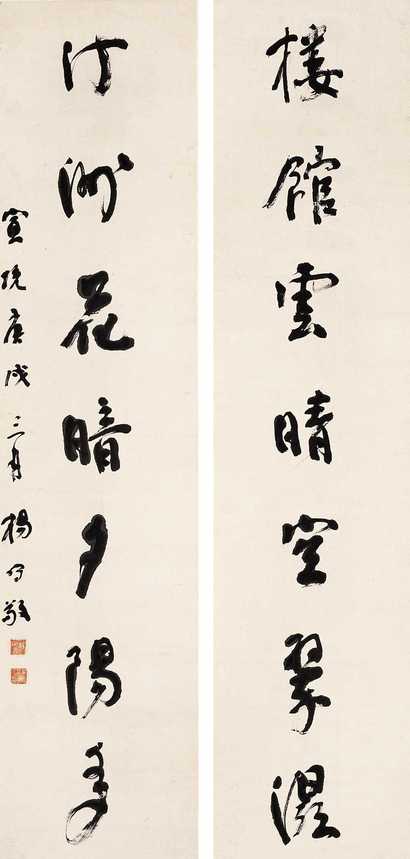 樓館雲晴空翠濕
汀洲花暗夕陽多
宣統庚戌三月 楊守敬